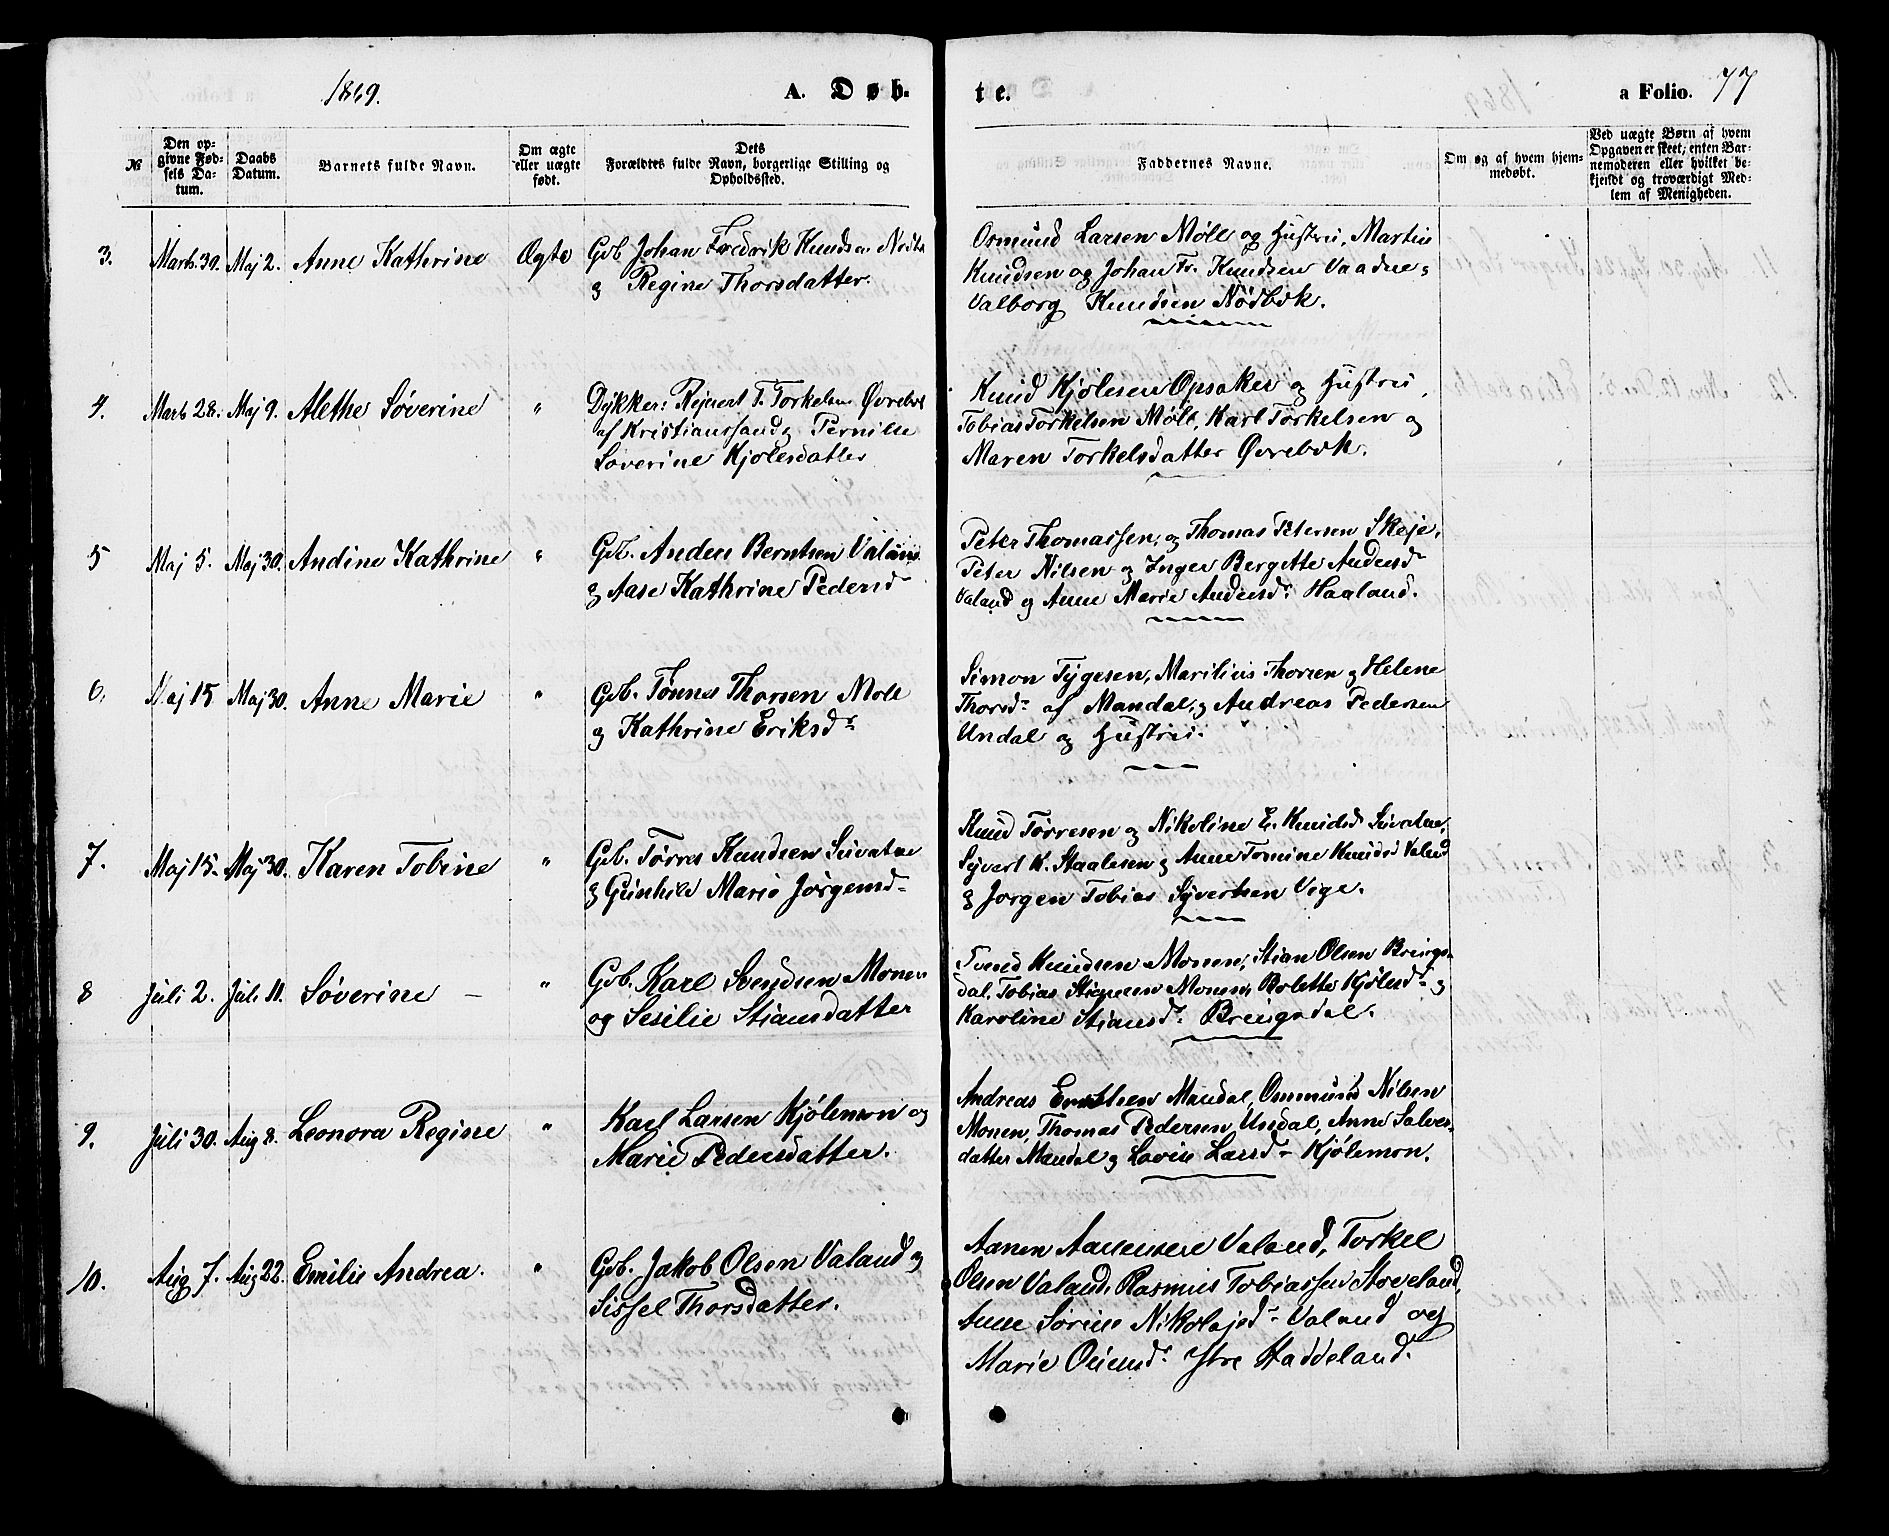 1869.
A. Døb-
te.
a Folio. 77
№
Den op-
givne Fød-
sels Da-
tum.
Daabs
Datum.
Barnets fulde Navn.
Om ægte
eller uægte
født.
Dets
Forældres fulde Navn, borgerlige Stilling og
Opholdssted.
Faddernes Navne.
Om og af hvem hjem-
medøbt.
Ved uægte Børn af hvem
Opgaven er skeet, enten Bar-
nemoderen eller hvilket be-
kjendt og troværdigt Med-
lem af Menigheden.
3.
Marts 30.
Maj 2.
Anne Kathrine
Ægte
Gdb. Johan Fredrik Knudsen
og Regine Thorsdatter.
Osmund Larsen Møll og Hustru, Martin
Knudsen og Johan Fr. Knudsen Vaadne,
Valborg Knudsen Nødbæk.
4.
Marts 28.
Maj 9.
Alethe Søverine
"
Dykker: Rejnert T. Torkelsen Øvrebøe
af Kristianssand og Pernille
Søverine Kjølesdatter
Knud Kjølesen Opsaker og Hustru,
Tobias Torkelsen Møll, Karl Torkelsen og
Maren Torkelsdatter Øvrebøk.
5
Maj 5.
Maj 30.
Andine Kathrine
"
Gdb. Anders Berntsen Valand
og Aase Kathrine Pedersd.
Peter Thomassen, og Thomas Petersen Skeje,
Peter Nilsen og Inger Bergette Andersd.
Valand og Anne Marie Andersd. Haaland.
6.
Maj 15
Maj 30.
Anne Marie
"
Gdb. Tønnes Thorsen Møll
og Kathrine Eriksd.
Simon Tygesen, Marilius Thorsen og Helene
Thorsd. af Mandal, og Andreas Pedersen
Undal og Hustru.
7.
Maj 15.
Maj 30.
Karen Tobine
"
Gdb. Tørres Knudsen Suvatne
og Gunhild Marie Jørgensd.
Knud Tørresen og Nikoline E. Knudsd. Suvatne,
Syvert K. Staalesen og Anne Tomine Knudsd. Valand
og Jørgen Tobias Syvertsen Vige.
8
Juli 2.
Juli 11.
Søverine –
"
Gdb. Karl Svendsen Monen
og Sesilie Stiansdatter
Svend Knudsen Monen, Stian Olsen Brings-
dal, Tobias Monen, Bolette Kjølesd. og
Karoline Stiansd. Bringsdal.
9.
Juli 30.
Aug 8.
Leonora Regine
"
Karl Larsen Kjølemon og
Marie Pedersdatter.
Andreas Mandal, Osmund Nilsen
Monen, Thomas Pedersen Undal, Anne Salves-
datter Mandal og Lovise Larsd. Kjølemon.
10.
Aug 7.
Aug 22.
Emilie Andrea.
"
Gdb. Jakob Olsen Valand og
Sissel Thorsdatter.
Aanen Aanensen Valand, Torkel
Olsen Valand, Rasmus Tobiassen Støveland,
Anne Sørine Nikolajsd. Valand og
Marie Ytre Haddeland.